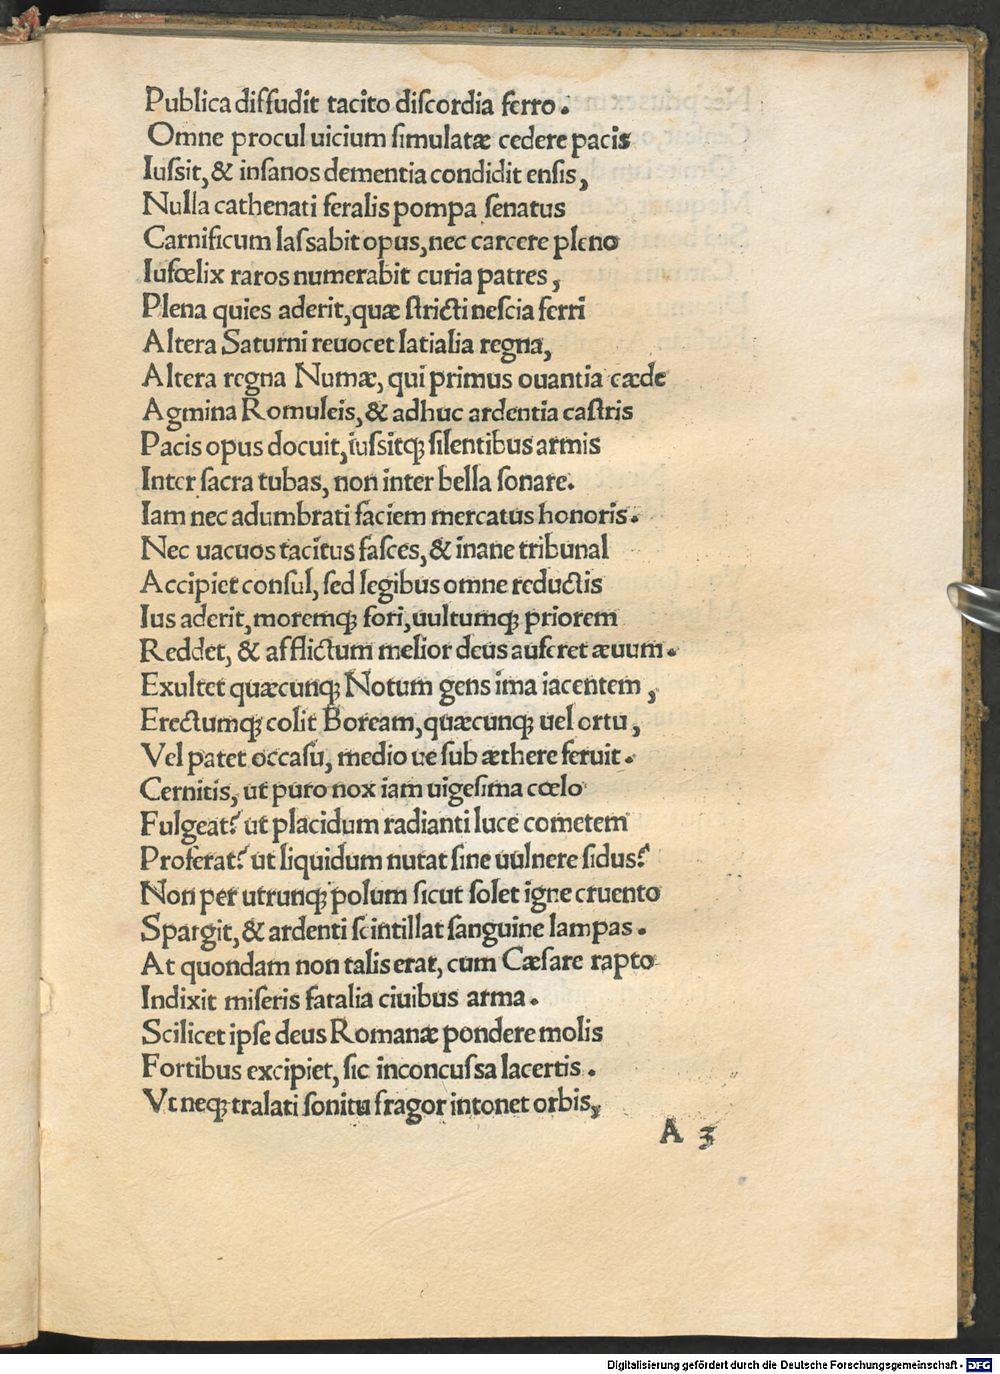 Publica diffudit tacito diſcordia ferro.
Omne procul uicium ſimulatæ cedere pacis
Iuſſit, & inſanos dementia condidit enſis,
Nulla cathenati feralis pompa ſenatus
Carnificum laſſabit opus, nec carcere pleno
Iufœlix raros numerabit curia patres,
Plena quies aderit, quæ ſtricti neſcia ferri
Altera Saturni reuocet latialia regna,
Altera regna Numæ, qui primus ouantia cæde
Agmina Romuleis, & adhuc ardentia caſtris
Pacis opus docuit, iuſſitq; ſilentibus armis
Inter ſacra tubas, non inter bella ſonare.
Iam nec adumbrati faciem mercatus honoris.
Nec uacuos tacitus faſces, & inane tribunal
Accipiet conſul, ſed legibus omne reductis
Ius aderit, moremq; fori, uultumq; priorem
Reddet, & afflictum melior deus auferet æuum.
Exultet quæcunq; Notum gens ima iacentem,
Erectumq; colit Boream, quæcunq; uel ortu,
Vel patet occaſu, medio ue ſub æthere feruit.
Cernitis, ut puro nox iam uigeſima cœlo
Fulgeat? ut placidum radianti luce cometem
Proferat? ut liquidum nutat ſine uulnere ſidus?
Non per utrunq; polum ſicut ſolet igne cruento
Spargit, & ardenti ſcintillat ſanguine lampas.
At quondam non talis erat, cum Cæſare rapto
Indixit miſeris fatalia ciuibus arma.
Scilicet ipſe deus Romanæ pondere molis
Fortibus excipiet, ſic inconcuſſa lacertis.
Vt neq; tralati ſonitu fragor intonet orbis,
A 3
Digitalisierung gefördert durch die Deutsche Forschungsgemeinschaft - DFG